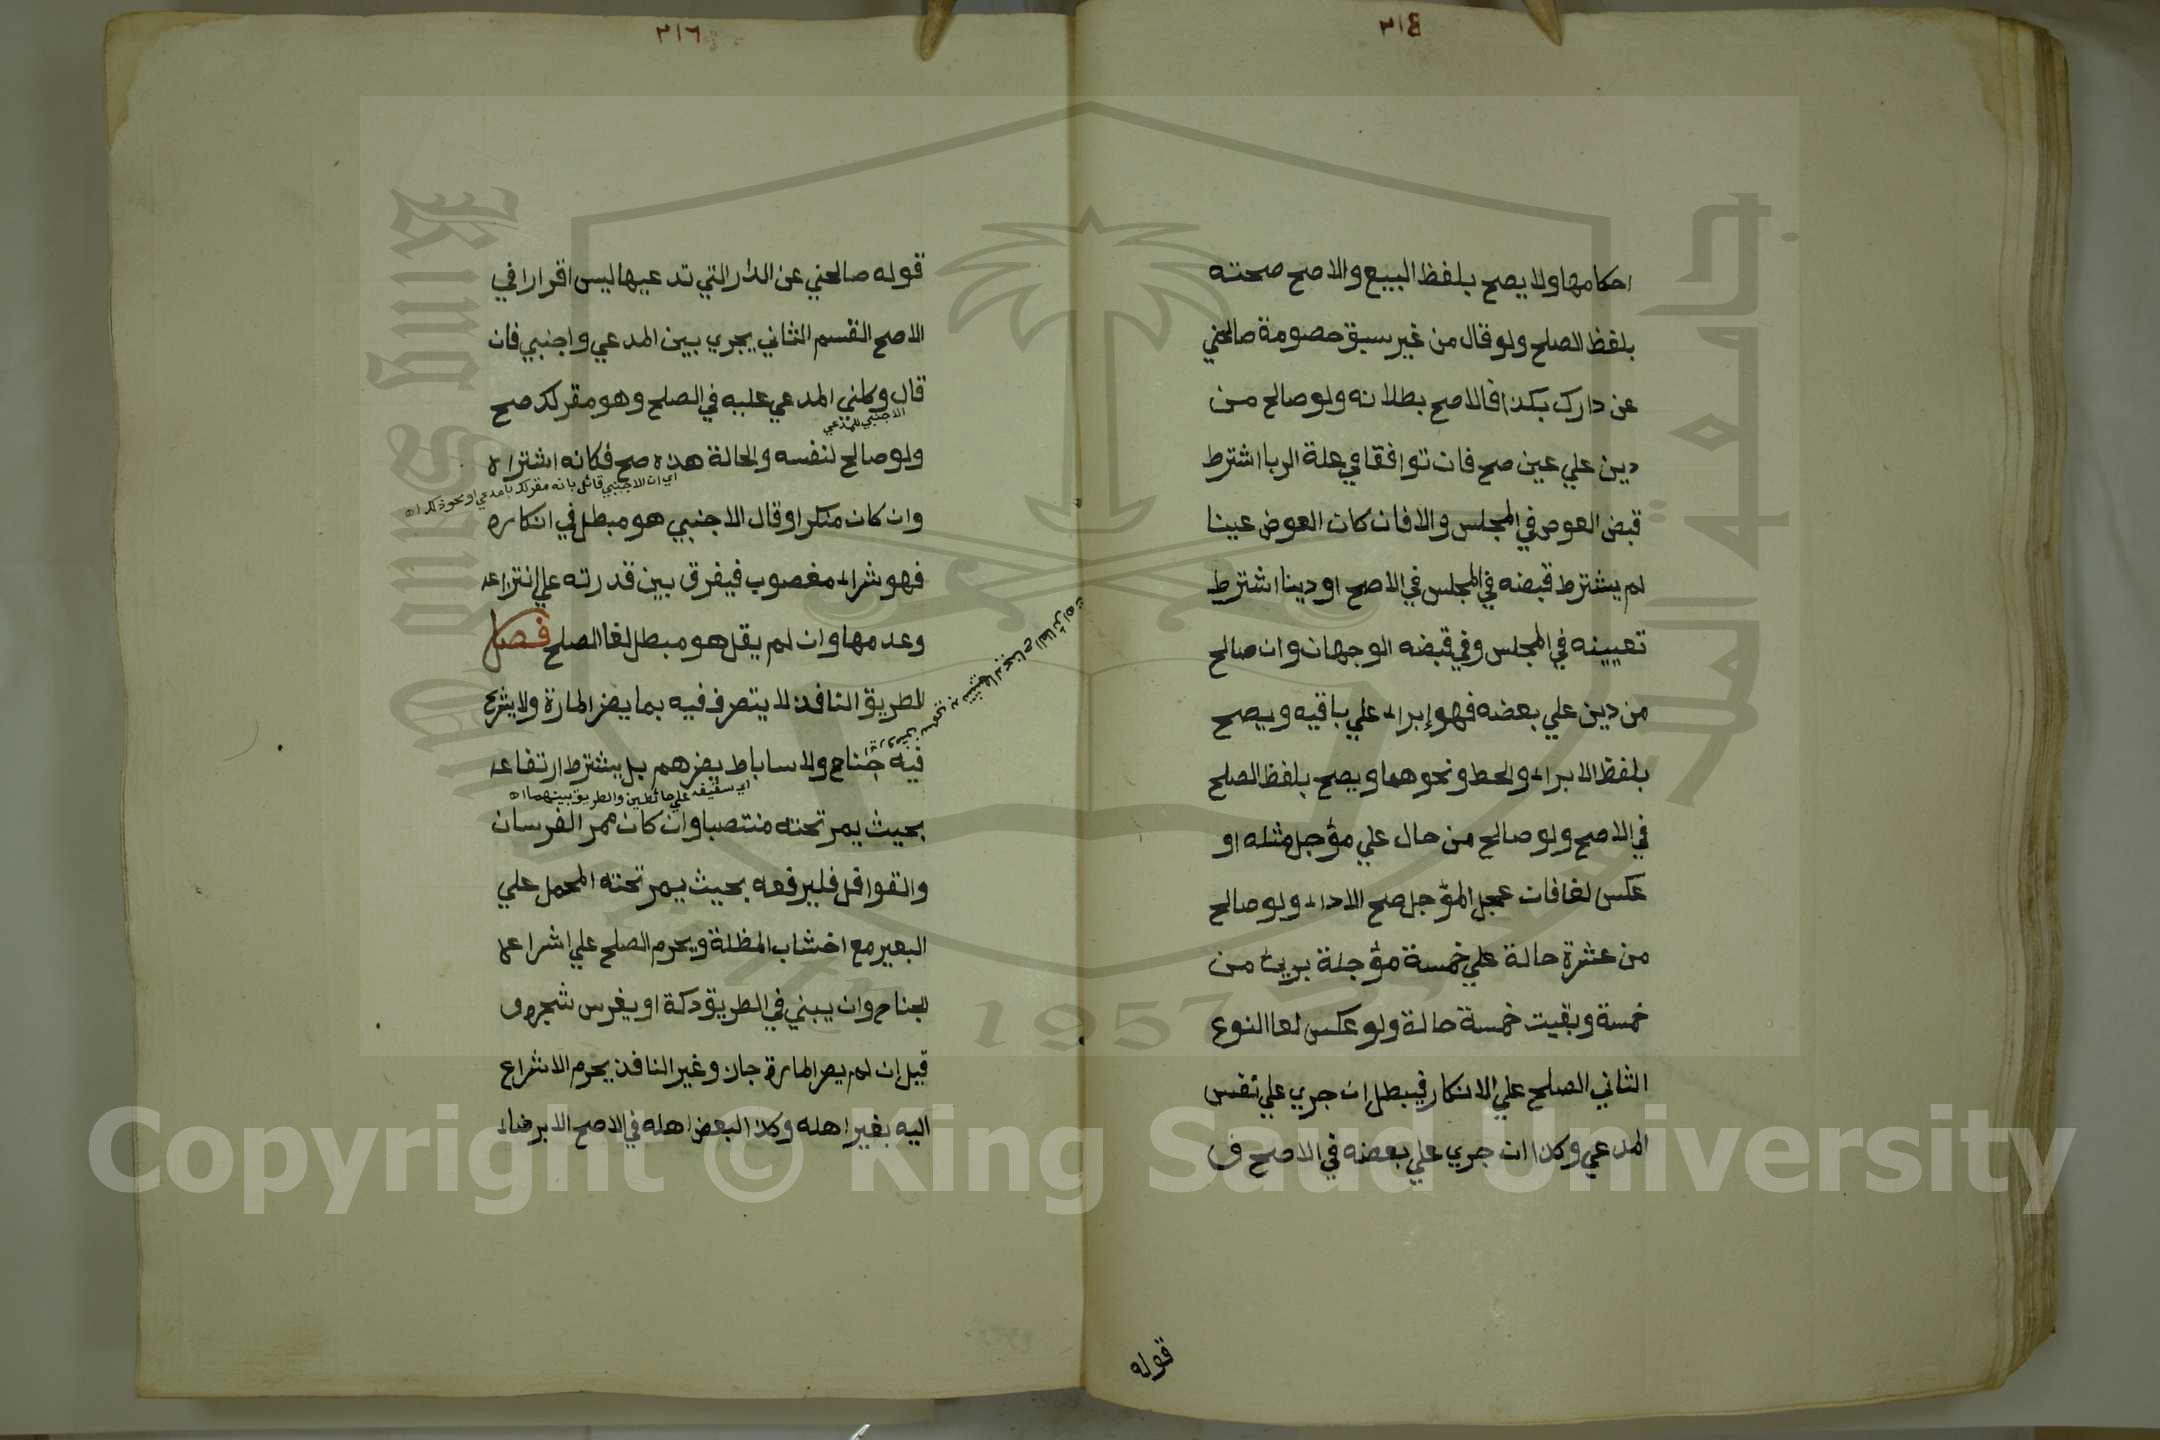 ٣١٥
احكامها ولا يصح بلفظ البيع والاصح صحته
بلفظ الصلح ولو قال من غير سبق خصومة صالحني
عن دارك بكذا فالاصح بطلانه ولو صالح من
دين علي عين صح فان توافقا في علة الربا اشترط
قبض العوض في المجلس والا فان كان العوض عينا
لم يشترط قبضه في المجلس في الاصح او دينا اشترط
تعيينه في المجلس وفي قبضه الوجهان وان صالح
من دين علي بعضه فهو إبراء علي باقيه ويصح
بلفظ الابراء والحط ونحوهما ويصح بلفظ الصلح
في الاصح ولو صالح من حال علي مؤجل مثله او
عكس لغا فان عجل المؤجل صح الاداء ولو صالح
من عشرة حالة علي خمسة مؤجلة بريئ من
خمسة وبقيت خمسة حالة ولو عكس لغا النوع
الثاني الصلح علي الانكار فيبطل ان جري علي نفس
المدعي وكذا ان جري علي بعضه في الاصح و
قوله
٣١٦
قوله صالحني عن الدار التي تدعيها ليس اقرارا في
الاصح القسم الثاني يجري بين المدعي واجنبي فان
قال وكلني المدعي عليه في الصلح وهو مقر لك صح
الاجنبي للمدعي
ولو صالح لنفسه والحالة هذه صح فكانه اشتراه
اي ان الاجنبي قائل بانه مقر لك يا مدعي او نحو ذلك اه
وان كان منكرا وقال الاجنبي هو مبطل في انكاره
فهو شراء مغصوب فيفرق بين قدرته علي إنتزاعه
وعدمها وان لم يقل هو مبطل لغا الصلح فصل
الطريق النافذ لا يتصرف فيه بما يضر المارة ولا يشرع
فيه جناح ولا ساباط يضرهم بل يشترط ارتفاعه
اي سقيفه علي حائطين والطريق بينهما اه
بحيث يمر تحته منتصبا وان كان ممر الفرسان
والقوافل فليرفعه بحيث يمر تحته المحمل علي
البعير مع اخشاب المظلة ويحرم الصلح علي اشراع
الجناح وان يبني في الطريق دكة او يغرس شجره و
قيل ان لم يضر المارة جاز وغير النافذ يحرم الاشراع
اليه بغير اهله وكذا لبعض اهله في الاصح الا برضاء
King Saud University
1957
جامعة الملك سعود
Copyright © King Saud University